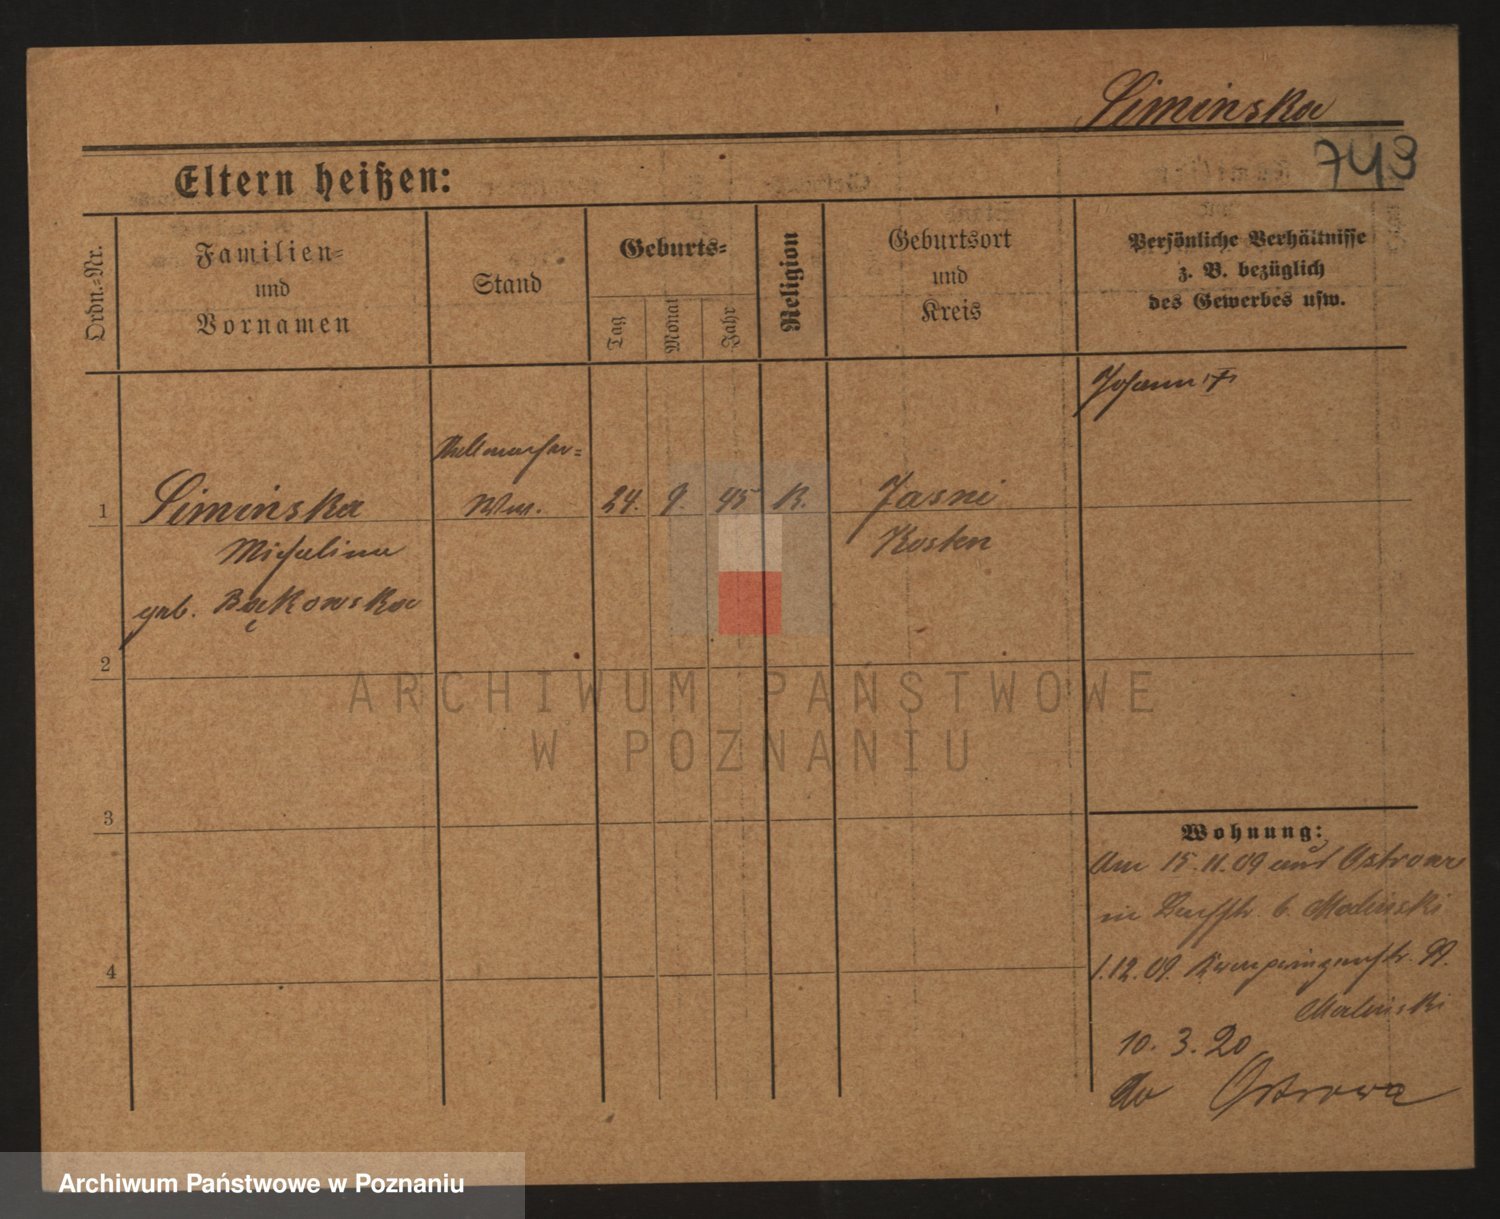 Simińska
743
Eltern heißen:
Ordn.-Nr.
Familien-
und
Vornamen
Stand
Geburts-
Tag
Monat
Jahr
Religion
Geburtsort
und
Kreis
Persönliche Verhältnisse
z. B. bezüglich
des Gewerbes usw.
Johann †
Stellmacher-
1 Simińska Ww. 24. 9. 45 K. Jasni
Michalina Kosten
geb. Bąkowska
2
3
4
Wohnung:
Am 15.11.09 aus Ostrowo
in b. Maliński
1.12.09. 99.
Maliński
10.3.20
Ostrowo
ARCHIWUM PAŃSTWOWE
W POZNANIU
Archiwum Państwowe w Poznaniu